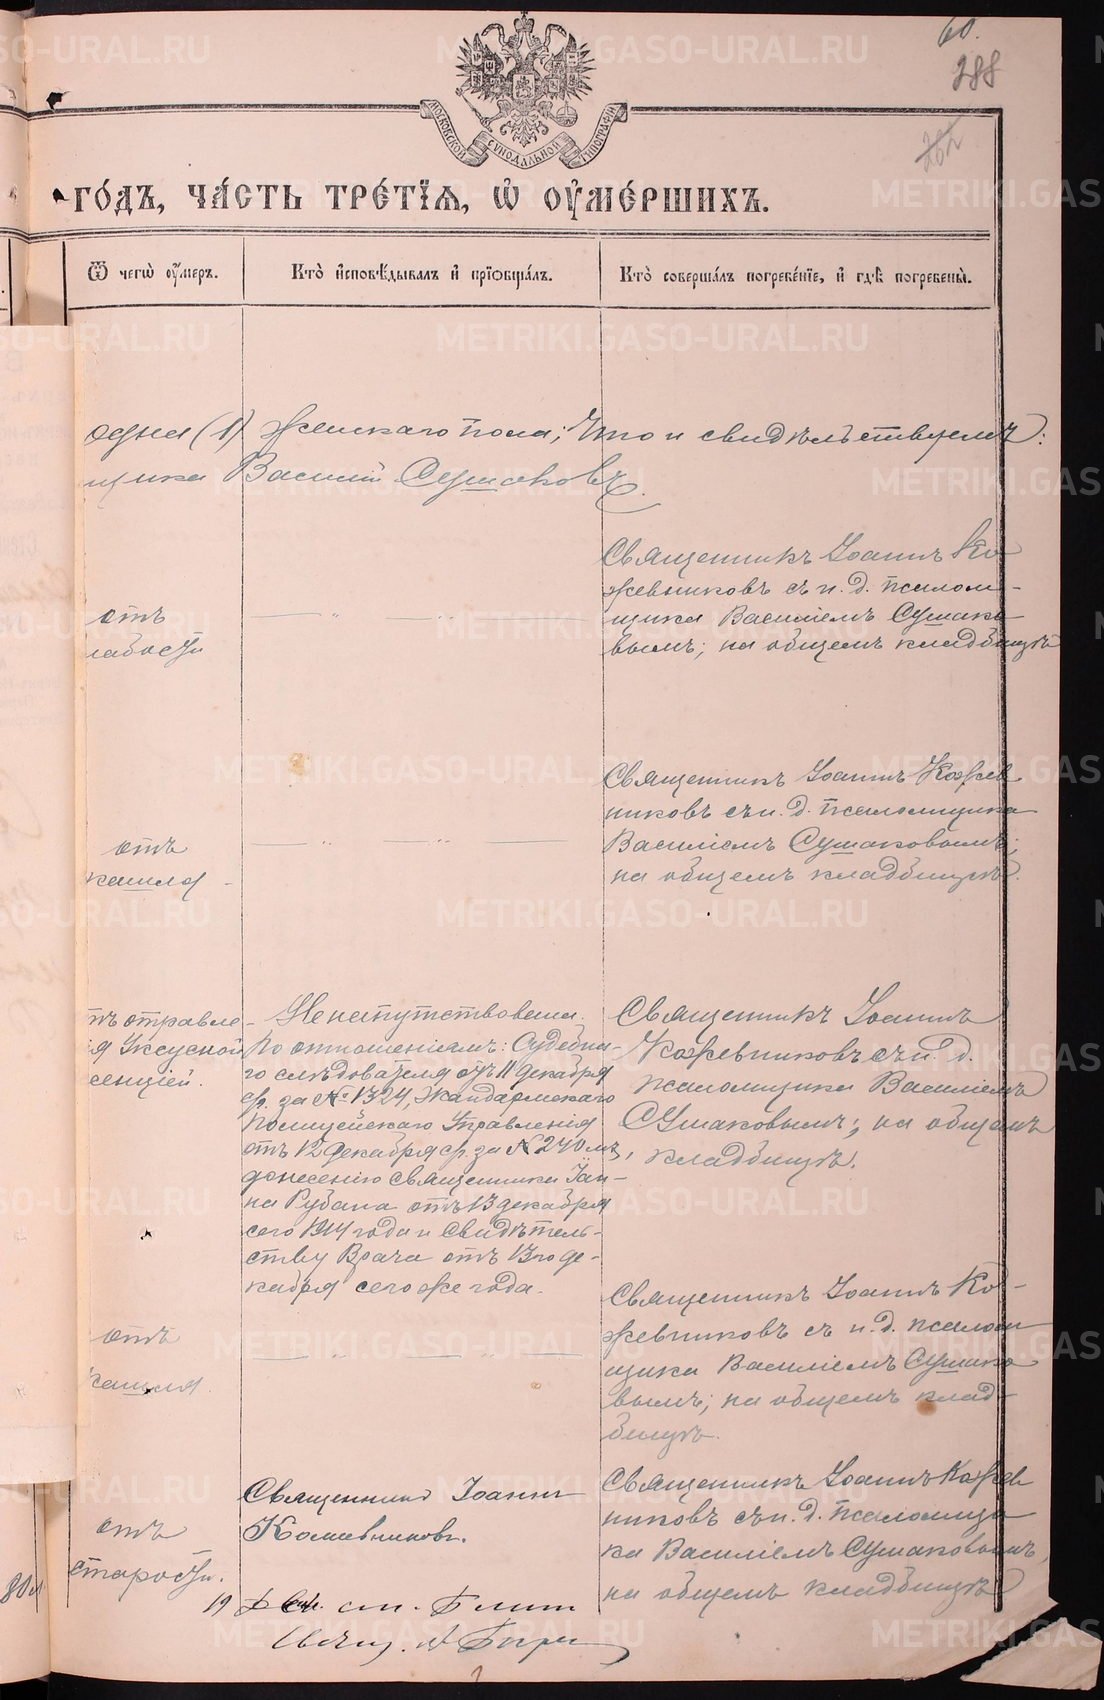 60.
288
282
МОСКОВСКОЙ СѴНОДАЛЬНОЙ ТИПОГРАФІИ
ГО́ДЪ, ЧА́СТЬ ТРЕ́ТІѦ, Ѡ҆ ОУ҆МЕ́РШИХЪ.
Ѿ чегѡ̀ оу҆́меръ.
Кто̀ и҆сповѣ́дывалъ и҆ прїѡбща́лъ.
Кто̀ соверша́лъ погребе́нїе, и҆ гдѣ̀ погребены̀.
одна (1) женскаго пола; Что и свидѣтельствуемъ:
щика Василій Сушаковъ.
отъ
лабости
Священникъ Іоаннъ Ко
жевниковъ съ и. д. псалом-
щика Василіемъ Сушако
вымъ; на общемъ кладбищѣ
отъ
кашля
Священникъ Іоаннъ Кожев
никовъ съ и. д. псаломщика
Василіемъ Сушаковымъ;
на общемъ кладбищѣ.
тъ отравле-
я Уксусной
сенціей.
Ненапутствована.
По отношеніямъ: Судебна-
го слѣдователя отъ 11 декабря
ср. за № 1324, Жандармскаго
Полицейскаго Управленія
отъ 12 декабря ср. за № 240мъ,
донесенію священника Іан-
на Рубана отъ 13 декабря
сего 1914 года и свидѣтель-
ству Врача отъ 13го де-
кабря сего же года.
Священникъ Іоаннъ
Кожевниковъ съ и. д.
псаломщика Василіемъ
Сушаковымъ; на общемъ
кладбищѣ.
отъ
кашля.
Священникъ Іоаннъ Ко-
жевниковъ съ и. д. псалом
щика Василіемъ Сушако
вымъ; на общемъ клад-
бищѣ.
80 л
отъ
старости.
Священникъ Іоаннъ
Кожевниковъ.
Священникъ Іоаннъ Кожев
никовъ съ и. д. псаломщи
ка Василіемъ Сушаковымъ,
на общемъ кладбищѣ
19
METRIKI.GASO-URAL.RU